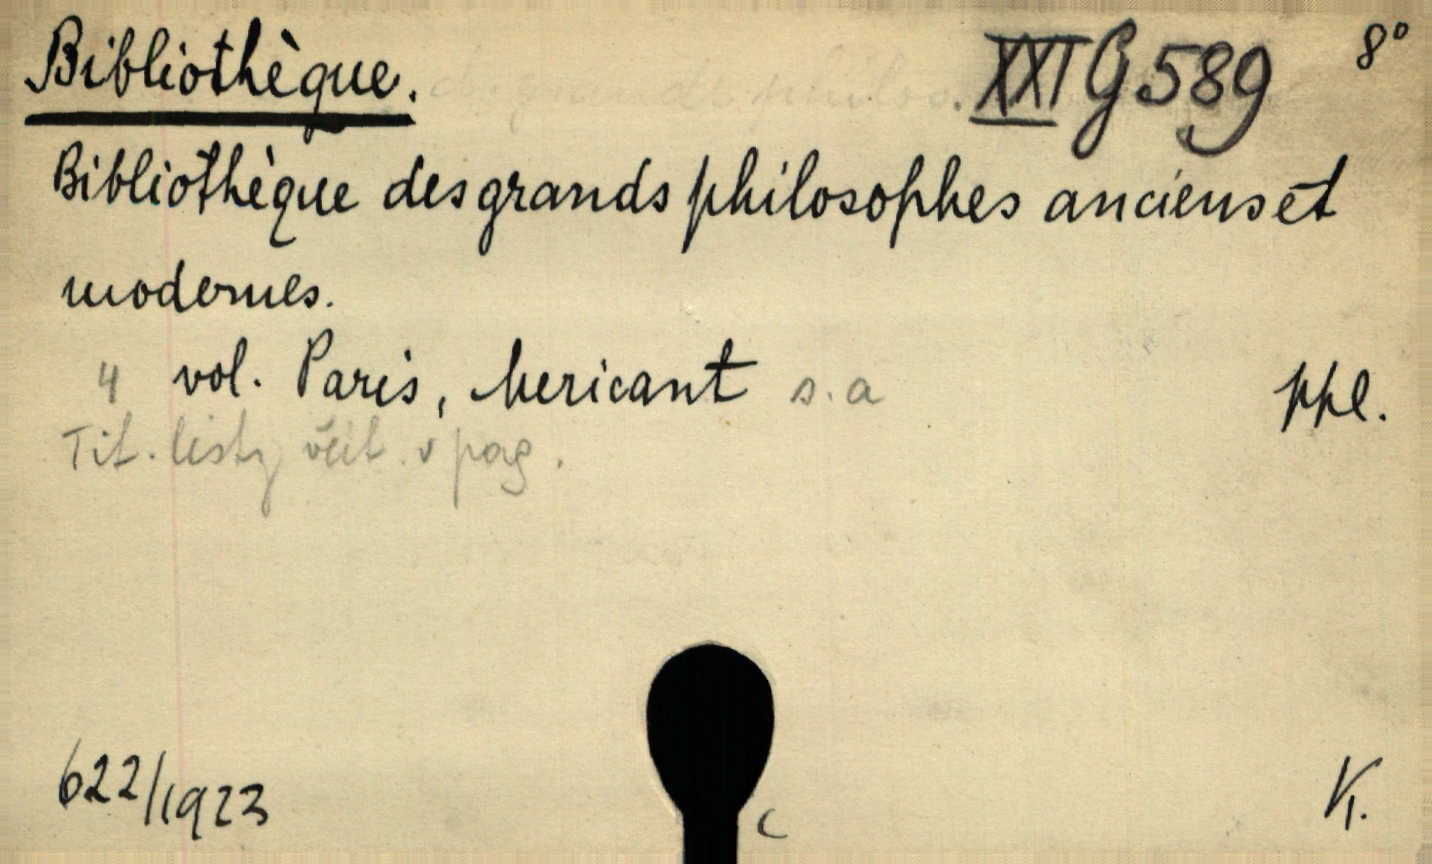 Bibliothèque. des grands philos. XXI G 589 8°
Bibliothèque des grands philosophes anciens et
modernes.
4 vol. Paris, Mericant s. a
ppl.
Tit. listy včít. v pag.
622/1923
K.
c